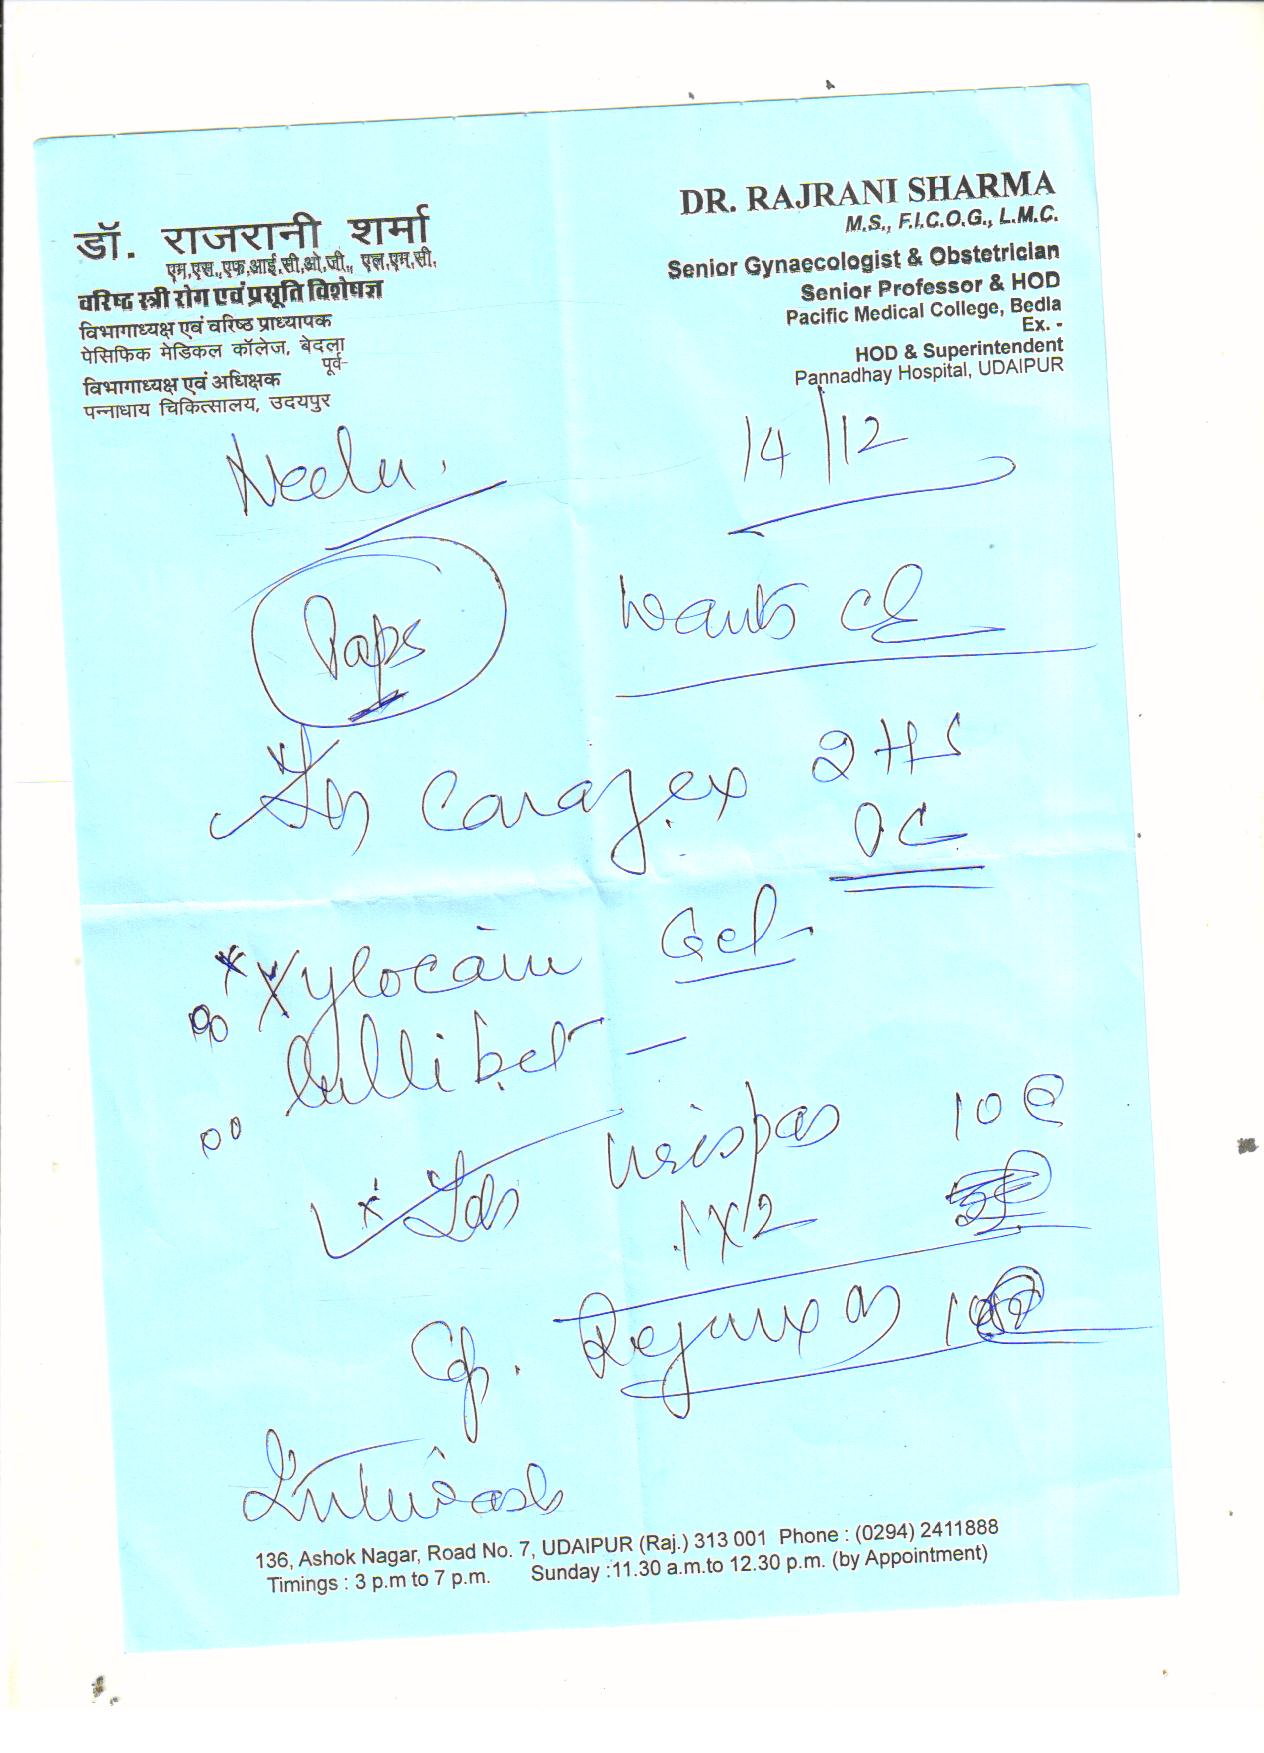 डॉ. राजरानी शर्मा
एम.एस.,एफ.आई.सी.ओ.जी., एल.एम.सी.
वरिष्ठ स्त्री रोग एवं प्रसूति विशेषज्ञ
विभागाध्यक्ष एवं वरिष्ठ प्राध्यापक
पेसिफिक मेडिकल कॉलेज, बेदला
पूर्व-
विभागाध्यक्ष एवं अधिक्षक
पन्नाधाय चिकित्सालय, उदयपुर
DR. RAJRANI SHARMA
M.S., F.I.C.O.G., L.M.C.
Senior Gynaecologist & Obstetrician
Senior Professor & HOD
Pacific Medical College, Bedla
Ex. -
HOD & Superintendent
Pannadhay Hospital, UDAIPUR
Neelu.
14/12
Paps
wants
2 HS
Xylocain Gel
Urispas 10
1x2
Cap.
136, Ashok Nagar, Road No. 7, UDAIPUR (Raj.) 313 001 Phone : (0294) 2411888
Timings : 3 p.m to 7 p.m. Sunday :11.30 a.m.to 12.30 p.m. (by Appointment)